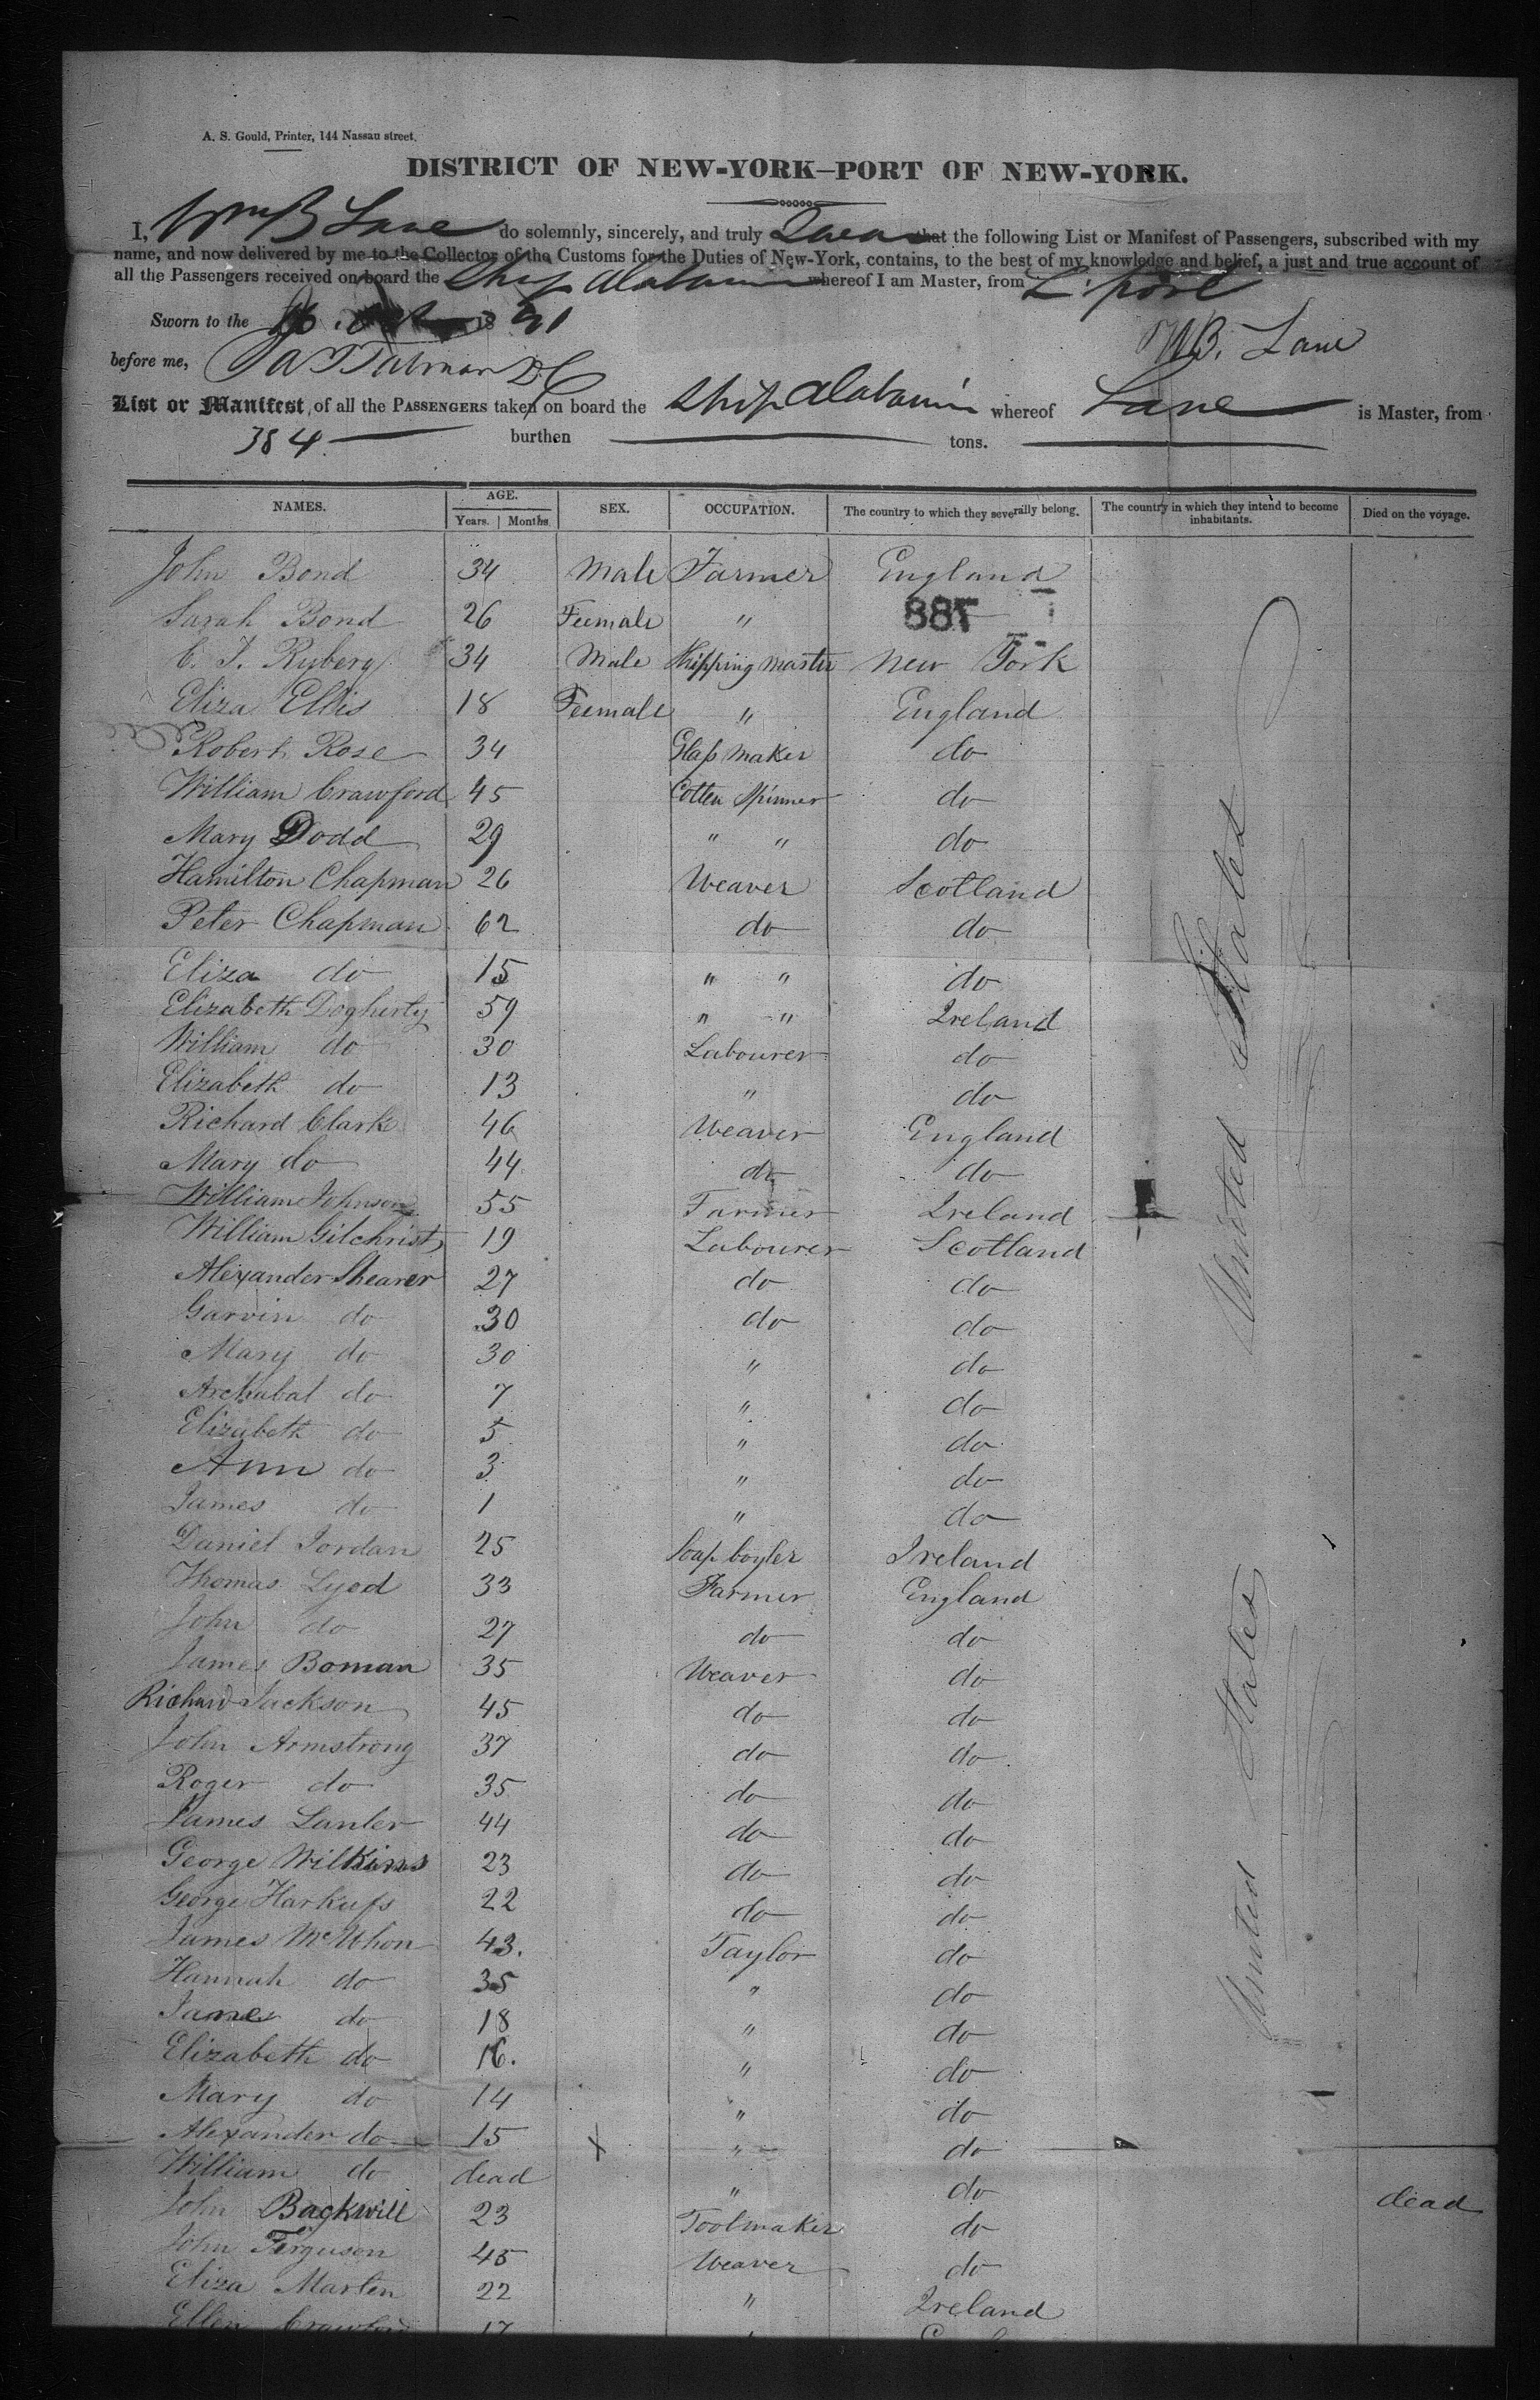 A. S. Gould, Printer, 144 Nassau street.
DISTRICT OF NEW-YORK—PORT OF NEW-YORK.
I, Wm B Lane do solemnly, sincerely, and truly Swear that the following List or Manifest of Passengers, subscribed with my
name, and now delivered by me to the Collector of the Customs for the Duties of New-York, contains, to the best of my knowledge and belief, a just and true account of
all the Passengers received on board the Ship Alabama whereof I am Master, from L'pool
Sworn to the 18
W B. Lane
before me,
List or Manifest, of all the PASSENGERS taken on board the Ship Alabama whereof Lane is Master, from
384. burthen tons.
NAMES. AGE. SEX. OCCUPATION. The country to which they severally belong. The country in which they intend to become inhabitants. Died on the voyage.
Years. Months.
John Bond 34 Male Farmer England
Sarah Bond 26 Feemale "
887
C. J. Ryberg 34 Male Shipping Master New York
Eliza Ellis 18 Feemale " England
Robert Rose 34 Glass Maker do
William Crawford 45 Cotten Spinner do
Mary Dodd 29 " " do
Hamilton Chapman 26 Weaver Scotland
Peter Chapman 62 do do
Eliza do 15 " " do
Elizabeth Dogherty 59 " " Ireland
William do 30 Labourer do
Elizabeth do 13 " do
Richard Clark 46 Weaver England
Mary do 44 do do
William Johnson 55 Farmer Ireland
William Gilchrist 19 Labourer Scotland
Alexander Shearer 27 do do
Garvin do 30 do do
Mary do 30 " do
Archabal do 7 " do
Elizabeth do 5 " do
Ann do 3 " do
James do 1 " do
Daniel Jordan 25 Soap boyler Ireland
Thomas Lyod 33 Farmer England
John do 27 do do
James Boman 35 Weaver do
Richard Jackson 45 do do
John Armstrong 37 do do
Roger do 35 do do
James Lanler 44 do do
George Wilkins 23 do do
George Harkuss 22 do do
James McWhon 43. Taylor do
Hannah do 35 " do
James do 18 " do
Elizabeth do 16. " do
Mary do 14 " do
Alexander do 15 x " do
William do dead " do dead
John Backwill 23 Toolmaker do
John Ferguson 45 Weaver do
Eliza Marten 22 " Ireland
Ellen Crawford 17
United States
United States